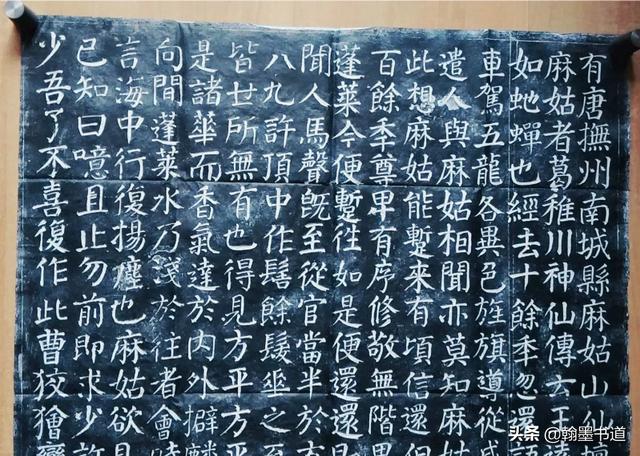 有唐撫州南城縣麻姑山仙壇
麻姑者葛稚川神仙傳云王遠
如虵蟬也經去十餘秊忽還語
車駕五龍各異色旌旗導從威
遣人與麻姑相聞亦莫知麻姑
此想麻姑能蹔來有頃信還但
百餘秊尊卑有序修敬無階思
蓬萊今便蹔往如是便還還
聞人馬聲既至從官當半於方
八九許頂中作髻餘髮垂之至
皆世所無有也得見方平方平
是諸華而香氣達於内外擗麟
向間蓬萊水乃淺於往者會時
言海中行復揚塵也麻姑欲見
已知曰噫且止勿前即求少許
少吾了不喜復作此曹狡獪變
头条 @翰墨书道